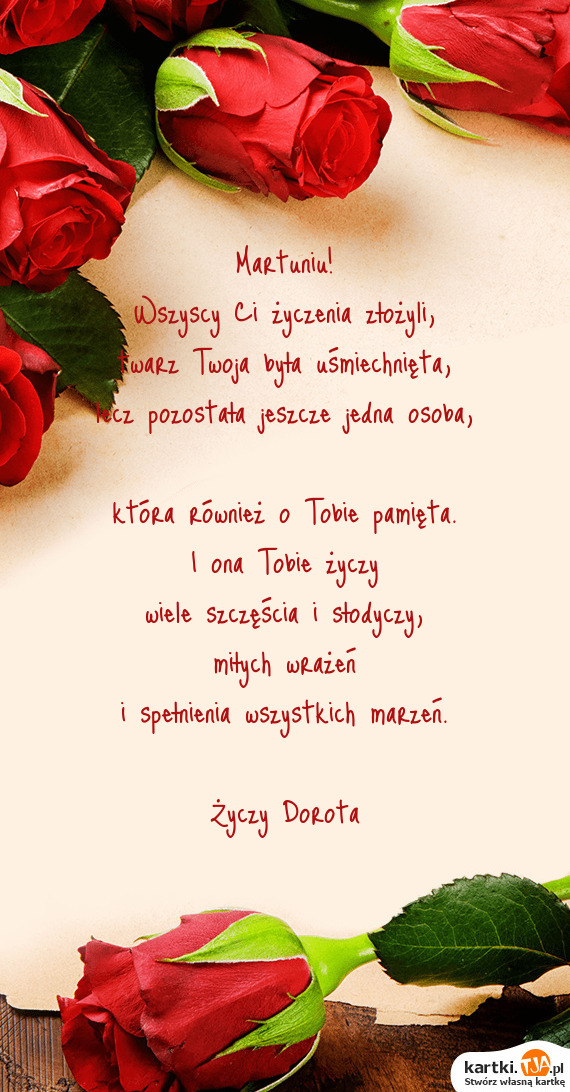 Martuniu!
Wszyscy Ci życzenia złożyli,
twarz Twoja była uśmiechnięta,
lecz pozostała jeszcze jedna osoba,
która również o Tobie pamięta.
I ona Tobie życzy
wiele szczęścia i słodyczy,
miłych wrażeń
i spełnienia wszystkich marzeń.
Życzy Dorota
kartki.TJA.pl
Stwórz własną kartkę